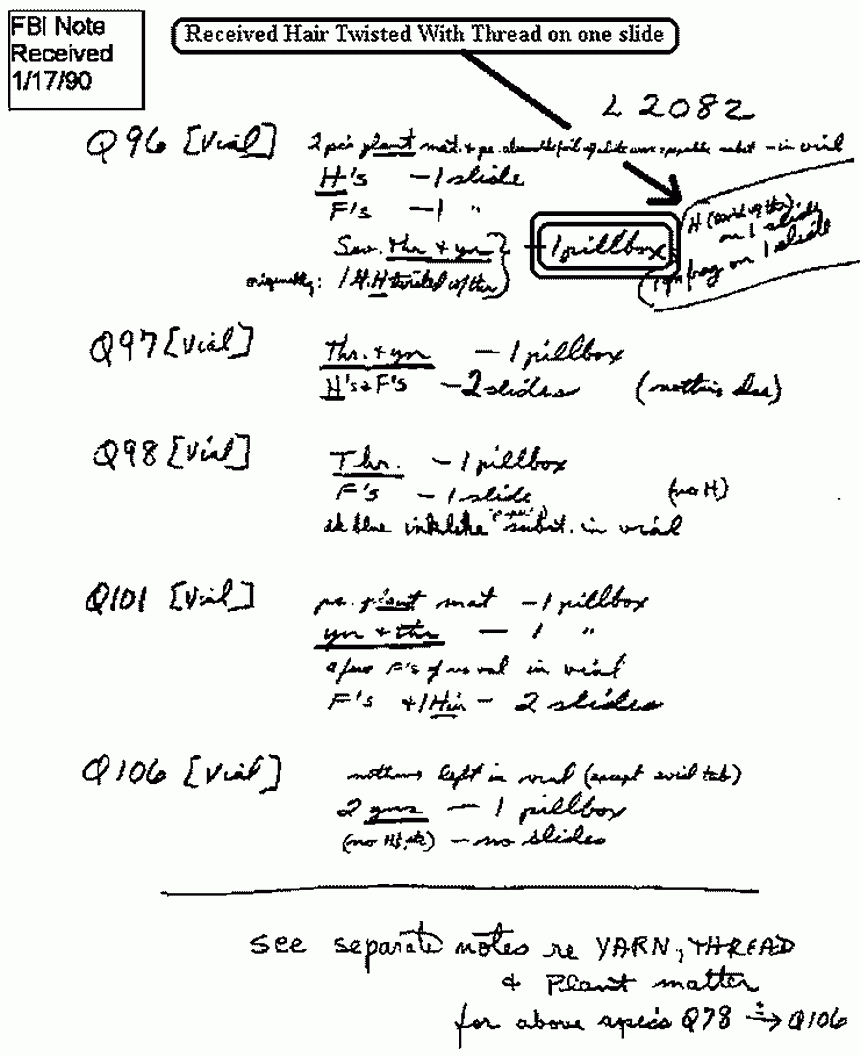 FBI Note
Received
1/17/90
Received Hair Twisted With Thread on one slide
L 2082
Q96 [Vial] 2 pcs plant mat. + pc. - in vial
H's - 1 slide
F's - 1 "
Sev. thr + yrn } - 1 pillbox
originally: 1 H twisted w/thr
H (twisted w/ thr).
on 1 slide
1 yrn frag on 1 slide
Q97 [Vial] Thr. + yrn - 1 pillbox
H's + F's - 2 slides (nothing else)
Q98 [Vial] Thr. - 1 pillbox
F's - 1 slide (no H)
dk blue inklike subst. in vial
Q101 [Vial] pc. plant mat - 1 pillbox
yrn + thr - 1 "
a few F's of no val in vial
F's + 1 Hair - 2 slides
Q106 [Vial] nothing left in vial (except evid tab)
2 yrns - 1 pillbox
(no H's, etc) - no slides
See separate notes re YARN, THREAD
+ Plant matter
for above spec's Q78 → Q106